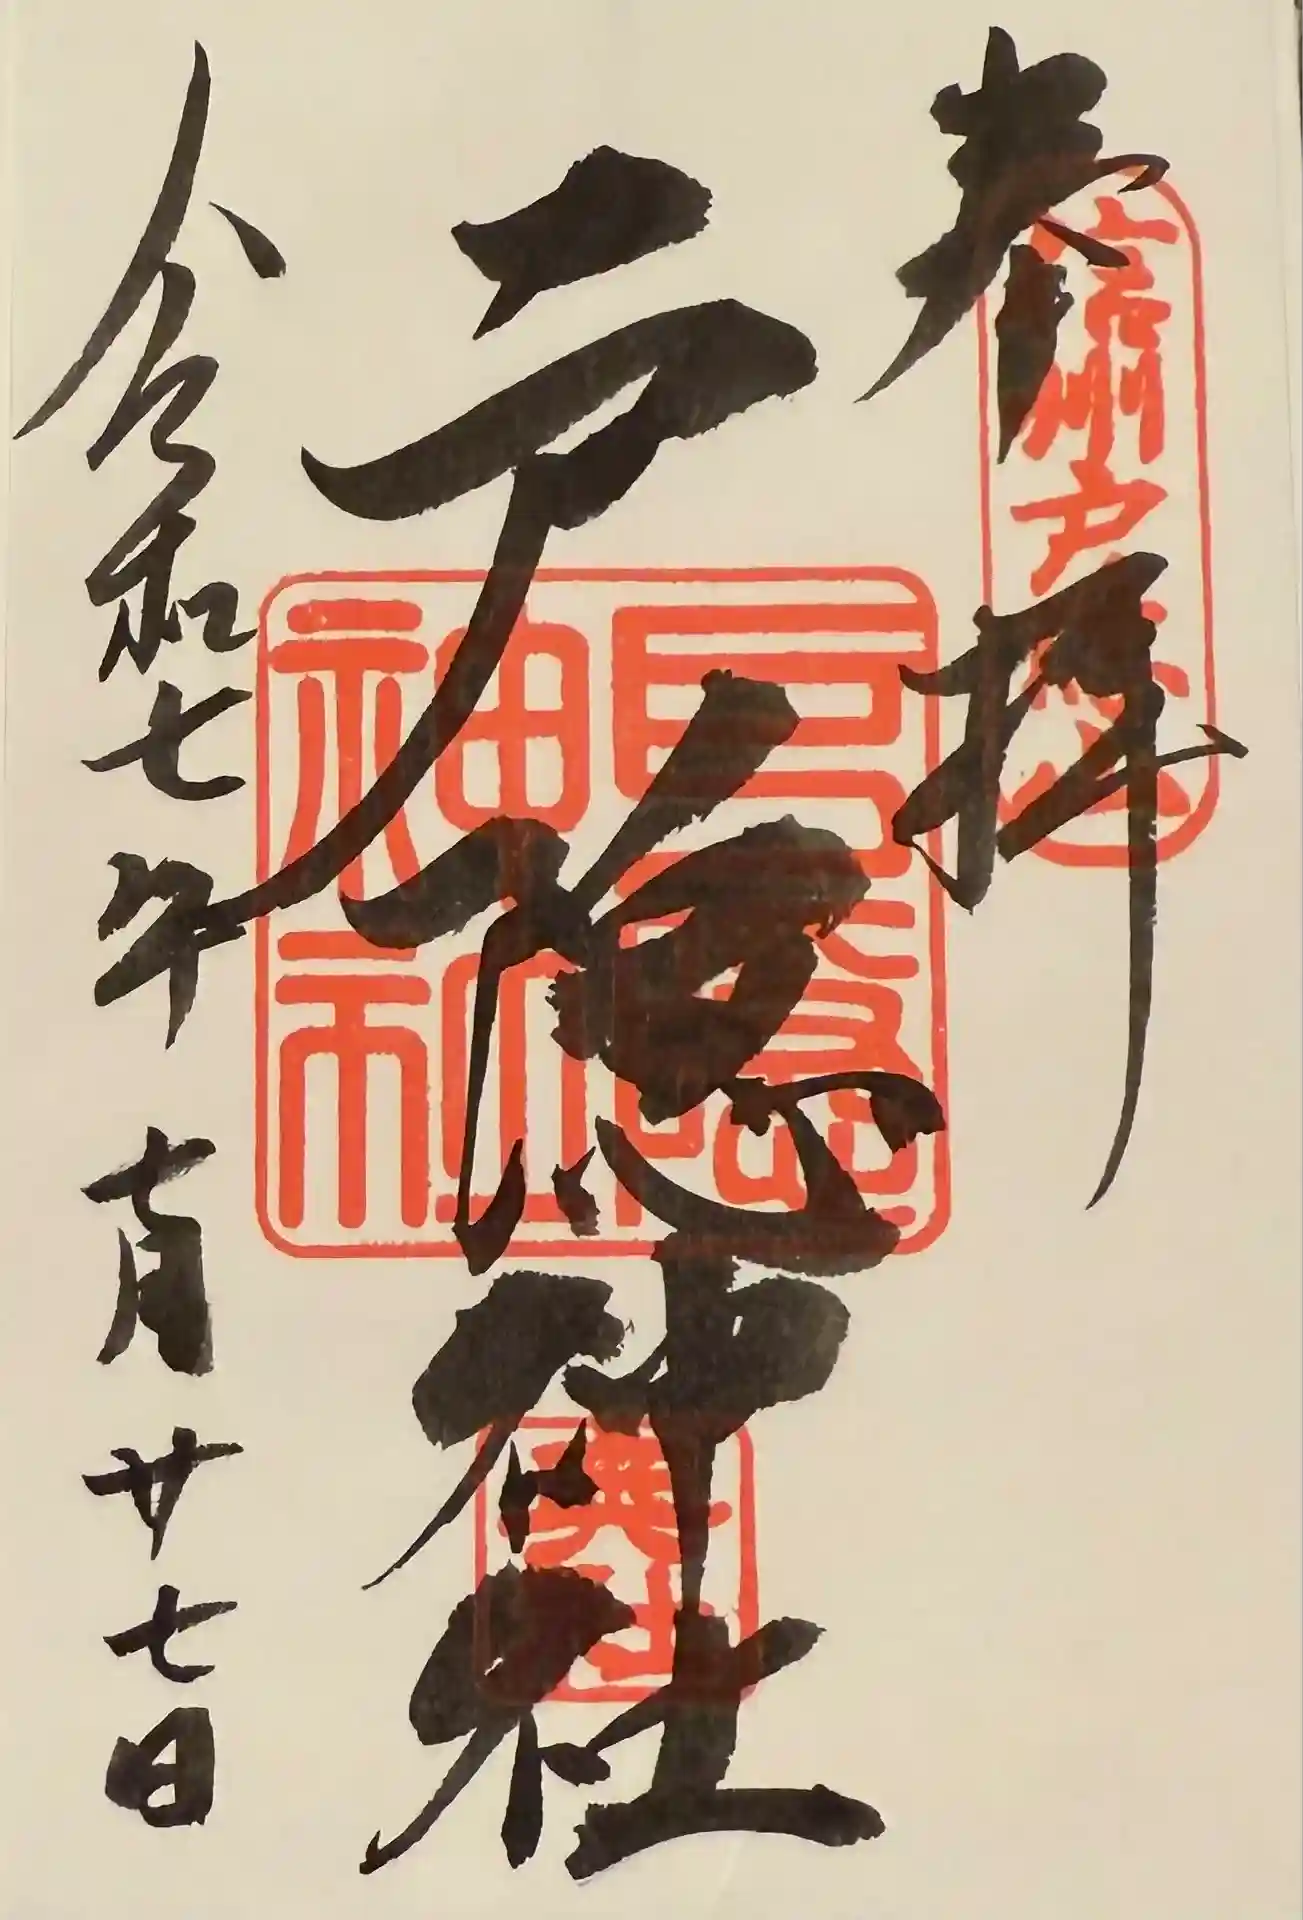 奉拝
信州戸隠山
戸隠神社
戸隠神社
奥社
令和七年十月廿七日